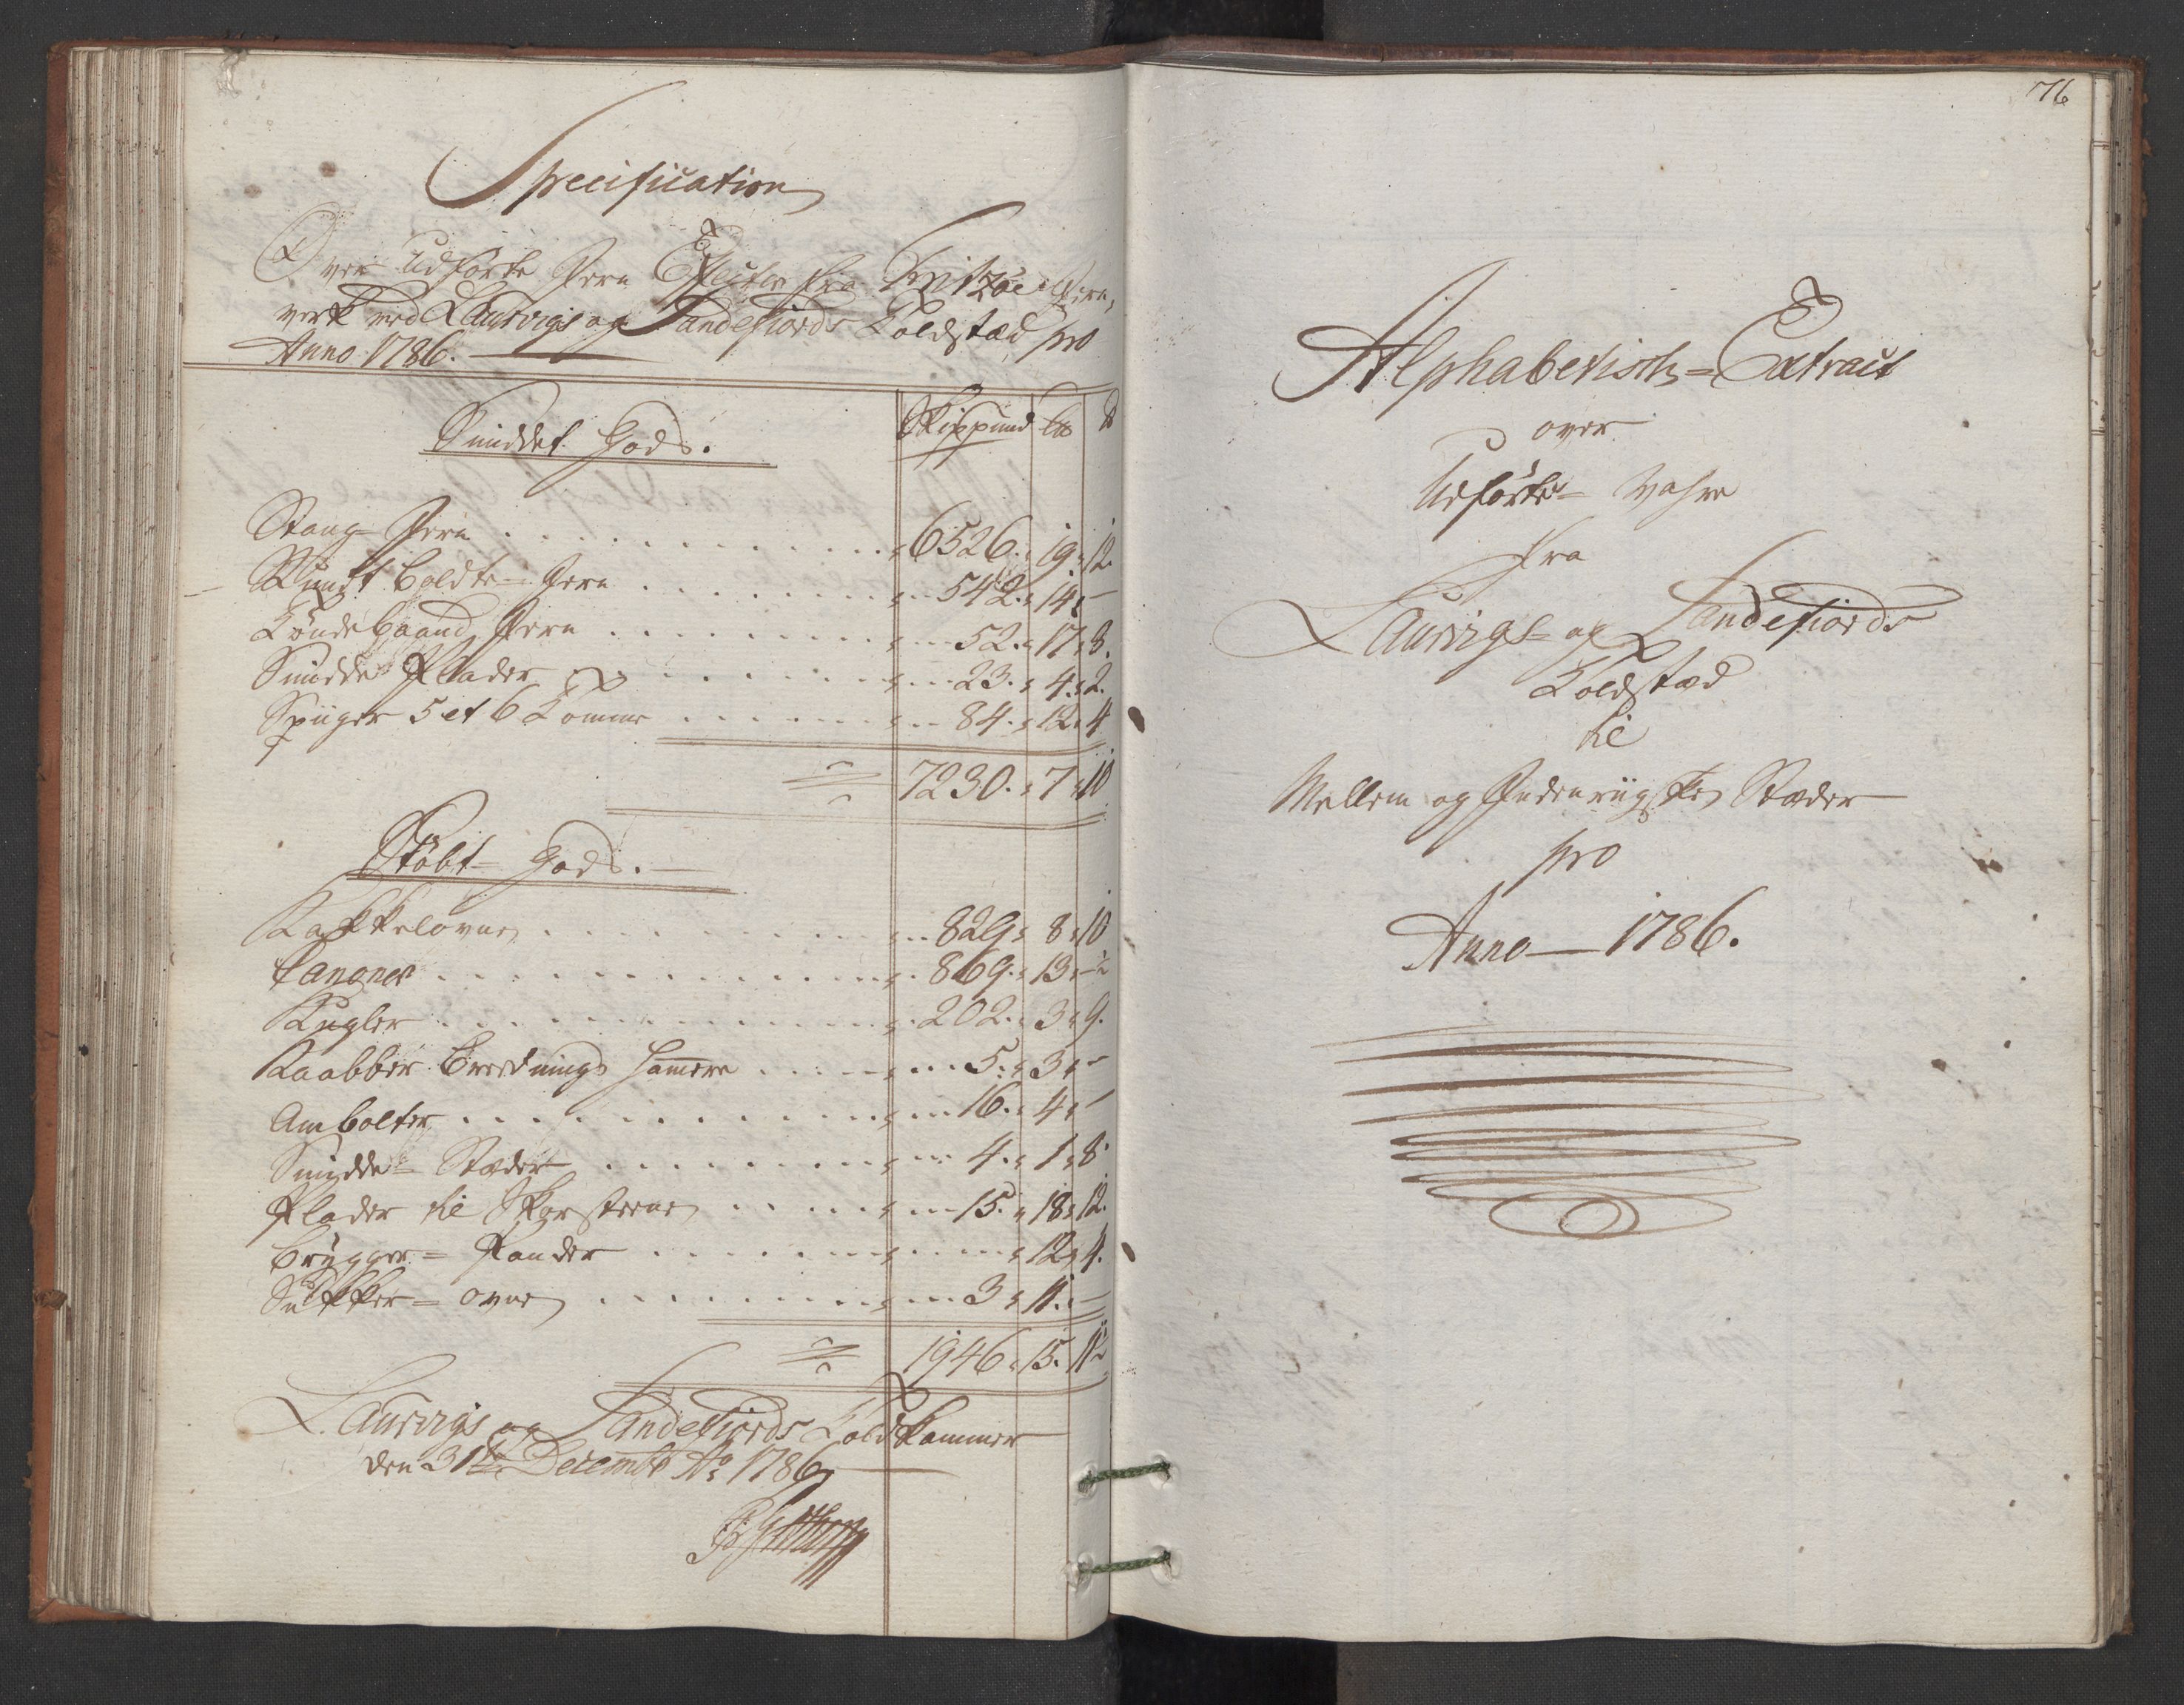 Specification
Over Udførte Jern Effecter fra Fritzøe Jern,
verk ved Laurvigs og Sandefiords Toldstæd pro
Anno 1786.
Smiddet Gods. Skippund L℔ ℔
Stang Jern 6526. 19. 12.
Rundt Boldte Jern 542. 14. —
Tøndebaand Jern 52. 17. 8.
Smidde Plader 23. 4. 2.
Spiiger 5 et 6 Tomme 84. 12. 4
7230. 7. 10
Støbt Gods.
Kakkelovne 829. 8. 10
Canoner 869. 13. — ½
Kugler 202. 3. 9.
Kaabber Brednings Hamere 5. 3. —
Ambolter 16. 4. —
Smidde Stæder 4. 1. 8.
Plader til Skorsteene 15. 18. 12.
Brygger = Pander 12. 4.
= ovne 3. 11. —
1946. 15. 11½
Laurvigs og Sandefiords Toldkammer
den 31te Decembr Ao 1786
76
Alphabetisch = Extract
over
Udførte = Vahre
fra
Laurvigs = og Sandefiords
Toldstæd
til
Mellem og Indenrigske Stæder
pro
Anno — 1786.